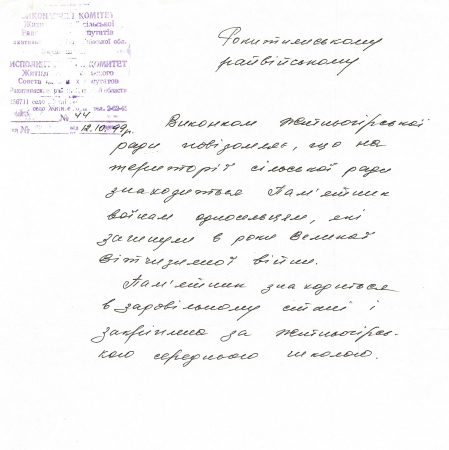 ВИКОНАВЧИЙ КОМІТЕТ
сільської
депутатів
обл.
ИСПОЛНИТЕЛЬНЫЙ КОМИТЕТ
Совета депутатов
области
№ 44
12.10.99р.
Рокитнянському
райвійському
Виконком Житньогірської
ради повідомляє, що на
території сільської ради
знаходиться Пам'ятник
воїнам односельцям, які
загинули в роки Великої
Вітчизняної війни.
Пам'ятник знаходиться
в задовільному стані і
закріплено за Житньогірсь-
кою середньою школою.